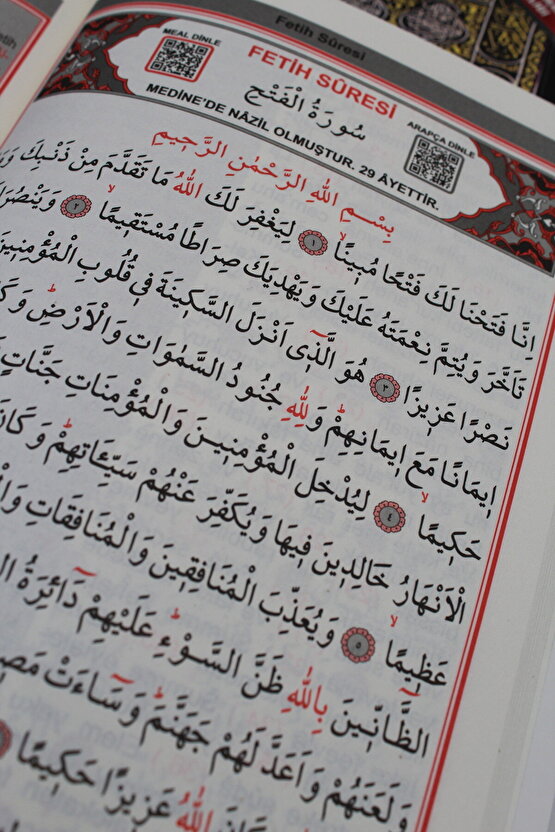 Fetih Sûresi
MEAL DİNLE
FETİH SÛRESİ
سُورَةُ الْفَتْحِ
ARAPÇA DİNLE
MEDİNE'DE NÂZİL OLMUŞTUR. 29 ÂYETTİR.
بِسْمِ اللّٰهِ الرَّحْمٰنِ الرَّحٖيمِ
اِنَّا فَتَحْنَا لَكَ فَتْحًا مُبٖينًاۙ ﴿١﴾ لِيَغْفِرَ لَكَ اللّٰهُ مَا تَقَدَّمَ مِنْ ذَنْبِكَ
تَاَخَّرَ وَيُتِمَّ نِعْمَتَهُ عَلَيْكَ وَيَهْدِيَكَ صِرَاطًا مُسْتَقٖيمًاۙ ﴿٢﴾
نَصْرًا عَزٖيزًا ﴿٣﴾ هُوَ الَّذٖٓى اَنْزَلَ السَّكٖينَةَ فٖى قُلُوبِ الْمُؤْمِنٖينَ
اٖيمَانًا مَعَ اٖيمَانِهِمْؕ وَلِلّٰهِ جُنُودُ السَّمٰوَاتِ وَالْاَرْضِؕ
حَكٖيمًاۙ ﴿٤﴾ لِيُدْخِلَ الْمُؤْمِنٖينَ وَالْمُؤْمِنَاتِ جَنَّاتٍ
الْاَنْهَارُ خَالِدٖينَ فٖيهَا وَيُكَفِّرَ عَنْهُمْ سَيِّـَٔاتِهِمْؕ
عَظٖيمًاۙ ﴿٥﴾ وَيُعَذِّبَ الْمُنَافِقٖينَ وَالْمُنَافِقَاتِ
الظَّٓانّٖينَ بِاللّٰهِ ظَنَّ السَّوْءِؕ عَلَيْهِمْ دَٓائِرَةُ
وَلَعَنَهُمْ وَاَعَدَّ لَهُمْ جَهَنَّمَؕ وَسَٓاءَتْ
اللّٰهُ عَزٖيزًا حَكٖيمًا